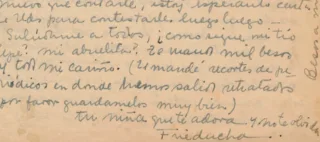 nuevo que contarle, estoy esperando carta
de Uds para contestarle luego luego —
Salúdame a todos, ¿como sigue mi tio
? mi abuelita? Te mando mil besos
y todo mi cariño. (Te mandé recortes de pe
riódicos en donde hemos salido retratados
por favor guardamelos muy bien)
tu niña que te adora y no te olvida
Frieducha..
Besos a